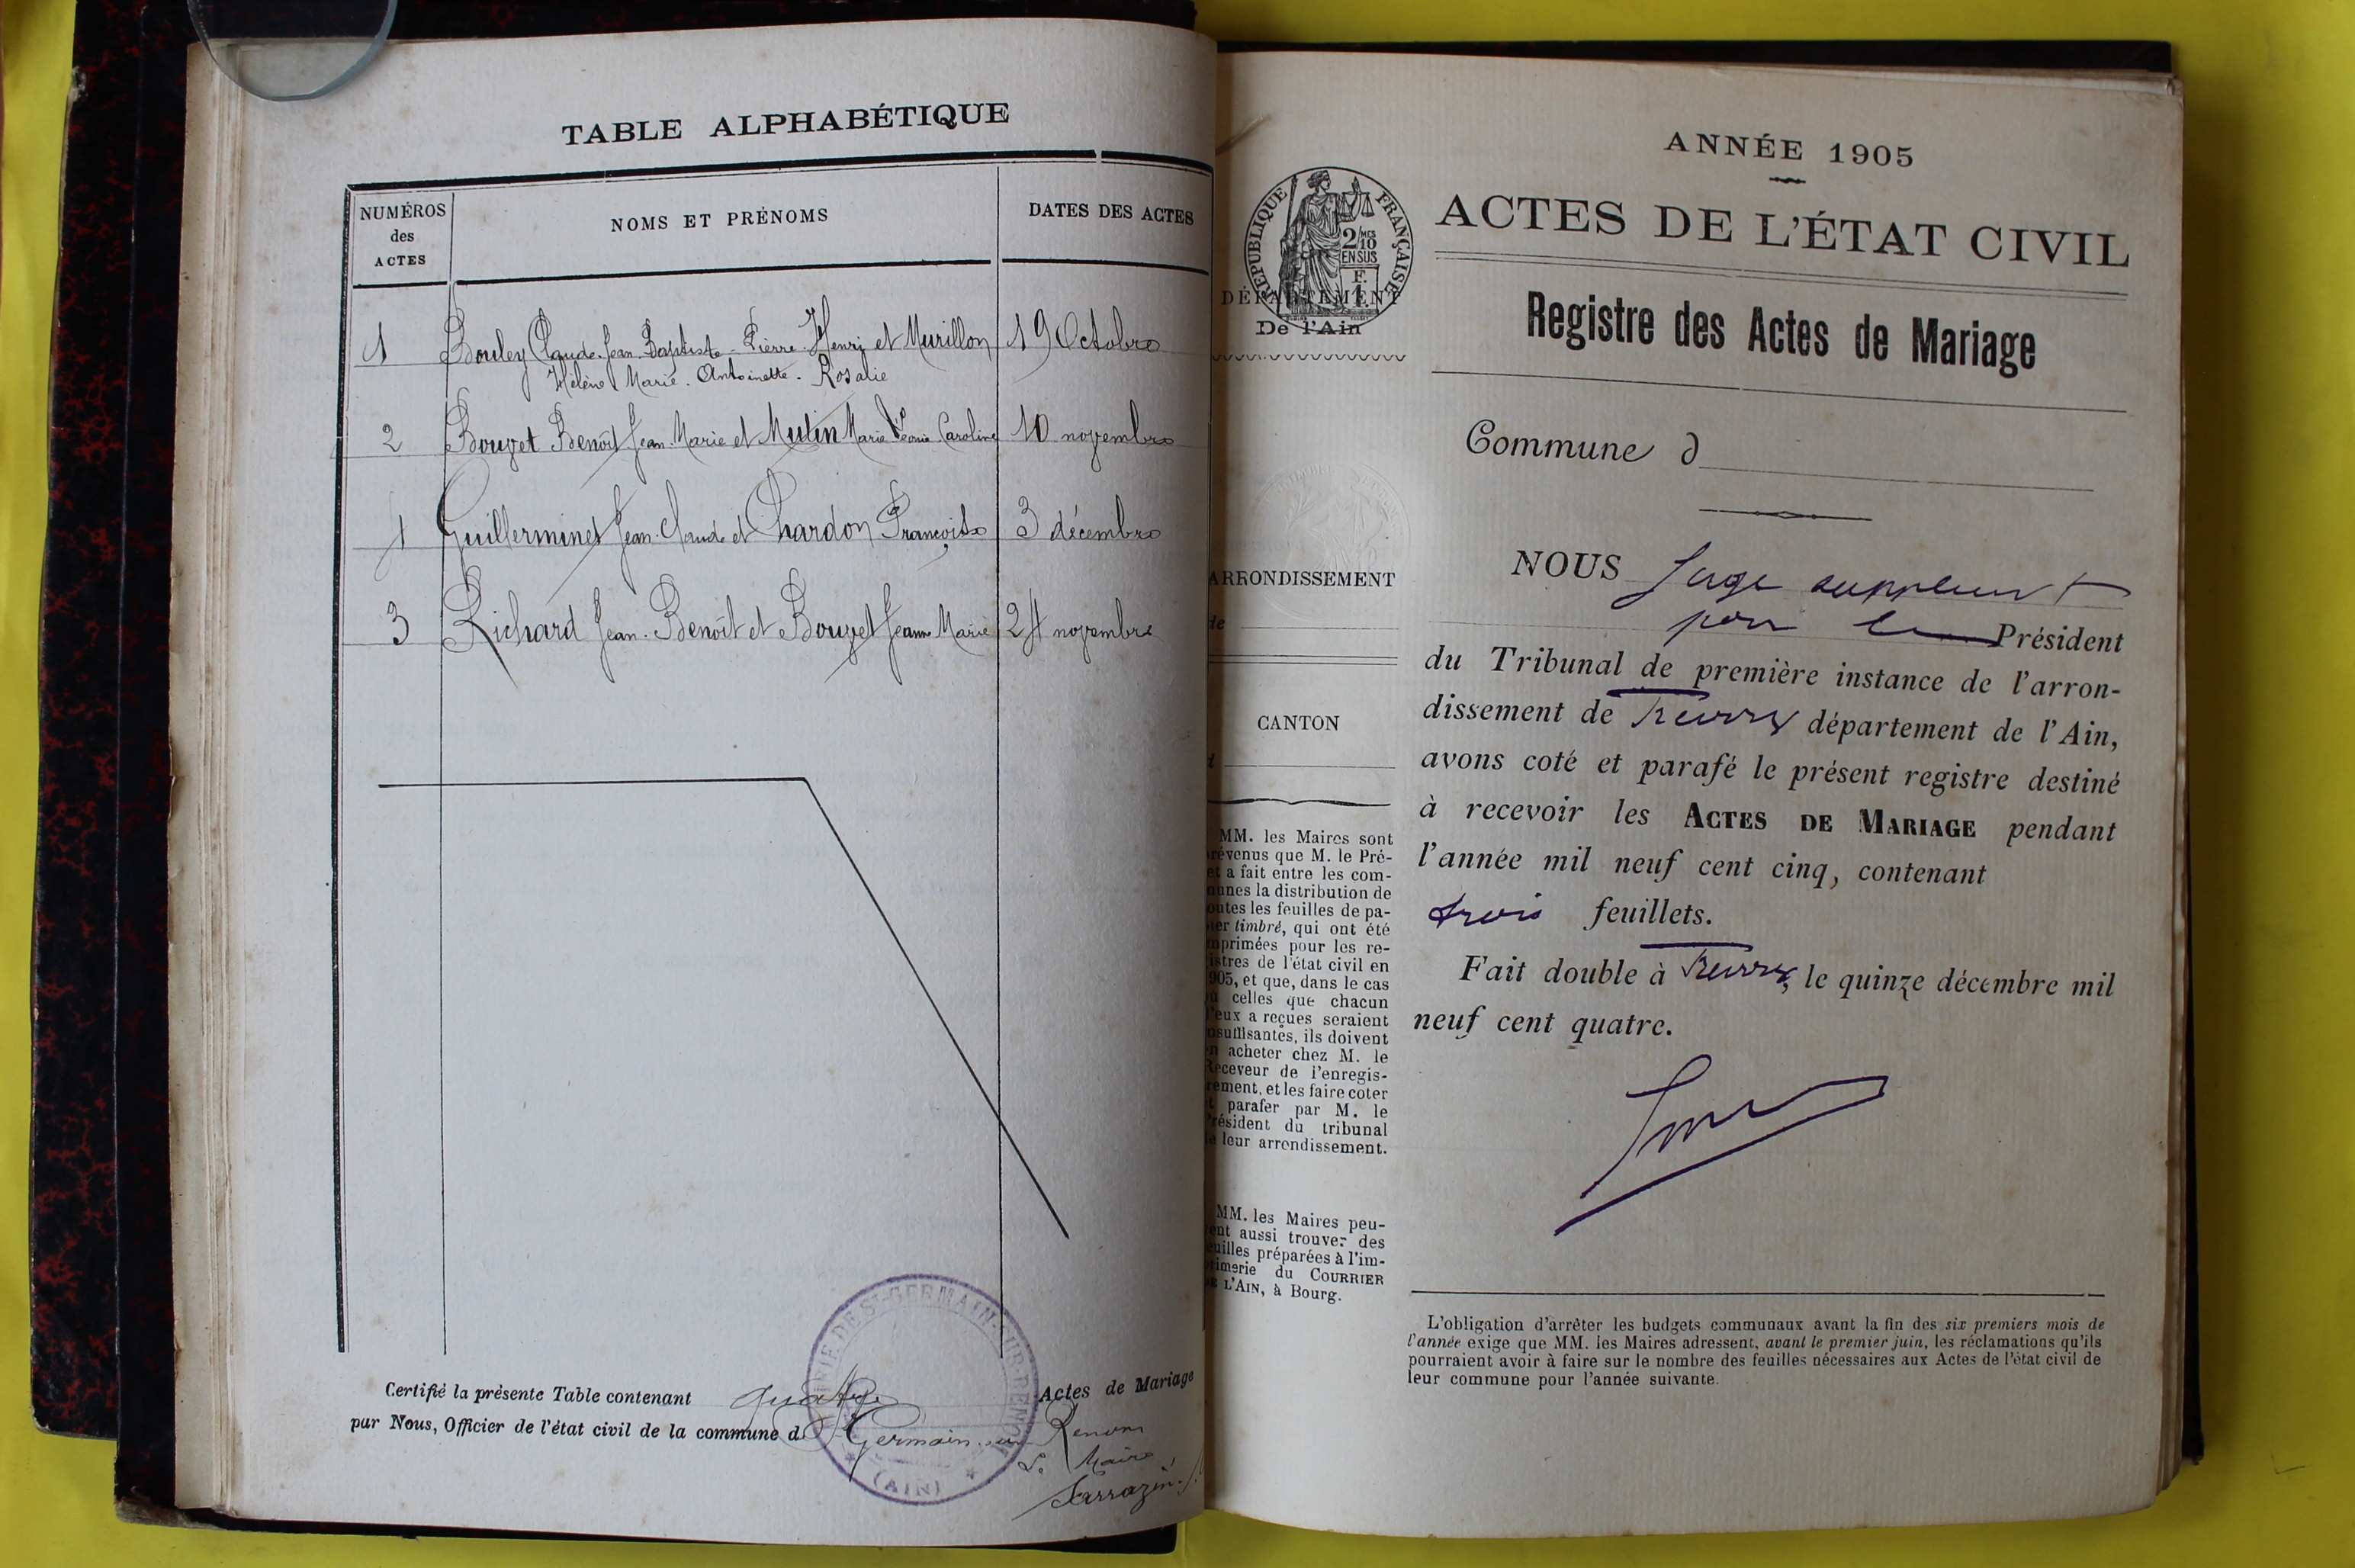 TABLE ALPHABÉTIQUE
NUMÉROS
des
ACTES
NOMS ET PRÉNOMS
DATES DES ACTES
1 Bouley Claude Jean Baptiste Pierre Henri et Murillon 19 Octobre
Hélène Marie Antoinette Rosalie
2 Bouvet Benoît Jean Marie et Mulin Marie Caroline 10 novembre
Guillerminet Jean Claude et Chardon 3 décembre
3 Richard Jean Benoît et Bouvet Jeanne Marie 24 novembre
Certifié la présente Table contenant quatre Actes de Mariage
par Nous, Officier de l'état civil de la commune d St Germain sur Renom
Le Maire
Sarrazin
MAIRIE DE ST GERMAIN-SUR-RENON
(AIN)
ANNÉE 1905
ACTES DE L'ÉTAT CIVIL
Registre des Actes de Mariage
RÉPUBLIQUE FRANÇAISE
2/10 MES
EN SUS
F.
1.
DÉPARTEMENT
De l'Ain
ARRONDISSEMENT
de
CANTON
MM. les Maires sont
révenus que M. le Pré-
et a fait entre les com-
munes la distribution de
outes les feuilles de pa-
ier timbré, qui ont été
mprimées pour les re-
istres de l'état civil en
905, et que, dans le cas
celles que chacun
d'eux a reçues seraient
nsuffisantes, ils doivent
n acheter chez M. le
Receveur de l'enregis-
rement, et les faire coter
t parafer par M. le
Président du tribunal
e leur arrondissement.
MM. les Maires peu-
ent aussi trouver des
euilles préparées à l'im-
rimerie du COURRIER
DE L'AIN, à Bourg.
Commune d
NOUS Juge suppléant
pour le Président
du Tribunal de première instance de l'arron-
dissement de Trévoux département de l'Ain,
avons coté et parafé le présent registre destiné
à recevoir les ACTES DE MARIAGE pendant
l'année mil neuf cent cinq, contenant
trois feuillets.
Fait double à Trévoux, le quinze décembre mil
neuf cent quatre.
L'obligation d'arrêter les budgets communaux avant la fin des six premiers mois de
l'année exige que MM. les Maires adressent, avant le premier juin, les réclamations qu'ils
pourraient avoir à faire sur le nombre des feuilles nécessaires aux Actes de l'état civil de
leur commune pour l'année suivante.